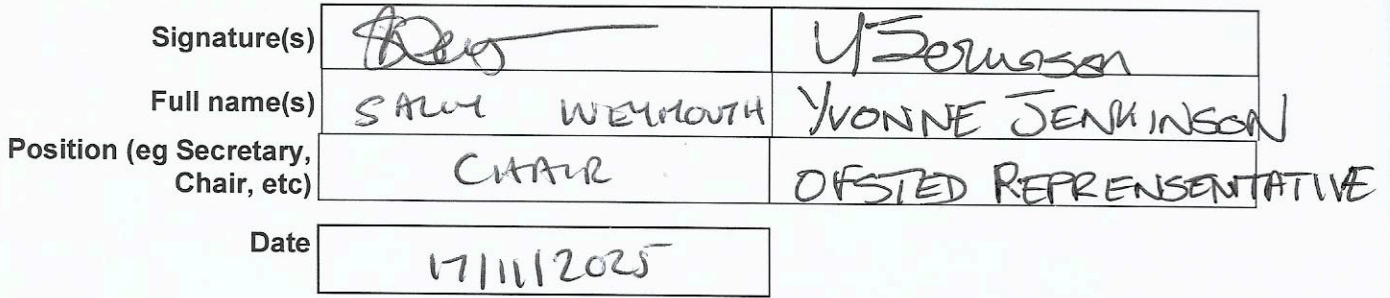 Signature(s) Y Jenkinson
Full name(s) SALLY WEYMOUTH YVONNE JENKINSON
Position (eg Secretary, CHAIR OFSTED REPRENSENTATIVE
Chair, etc)
Date 17/11/2025